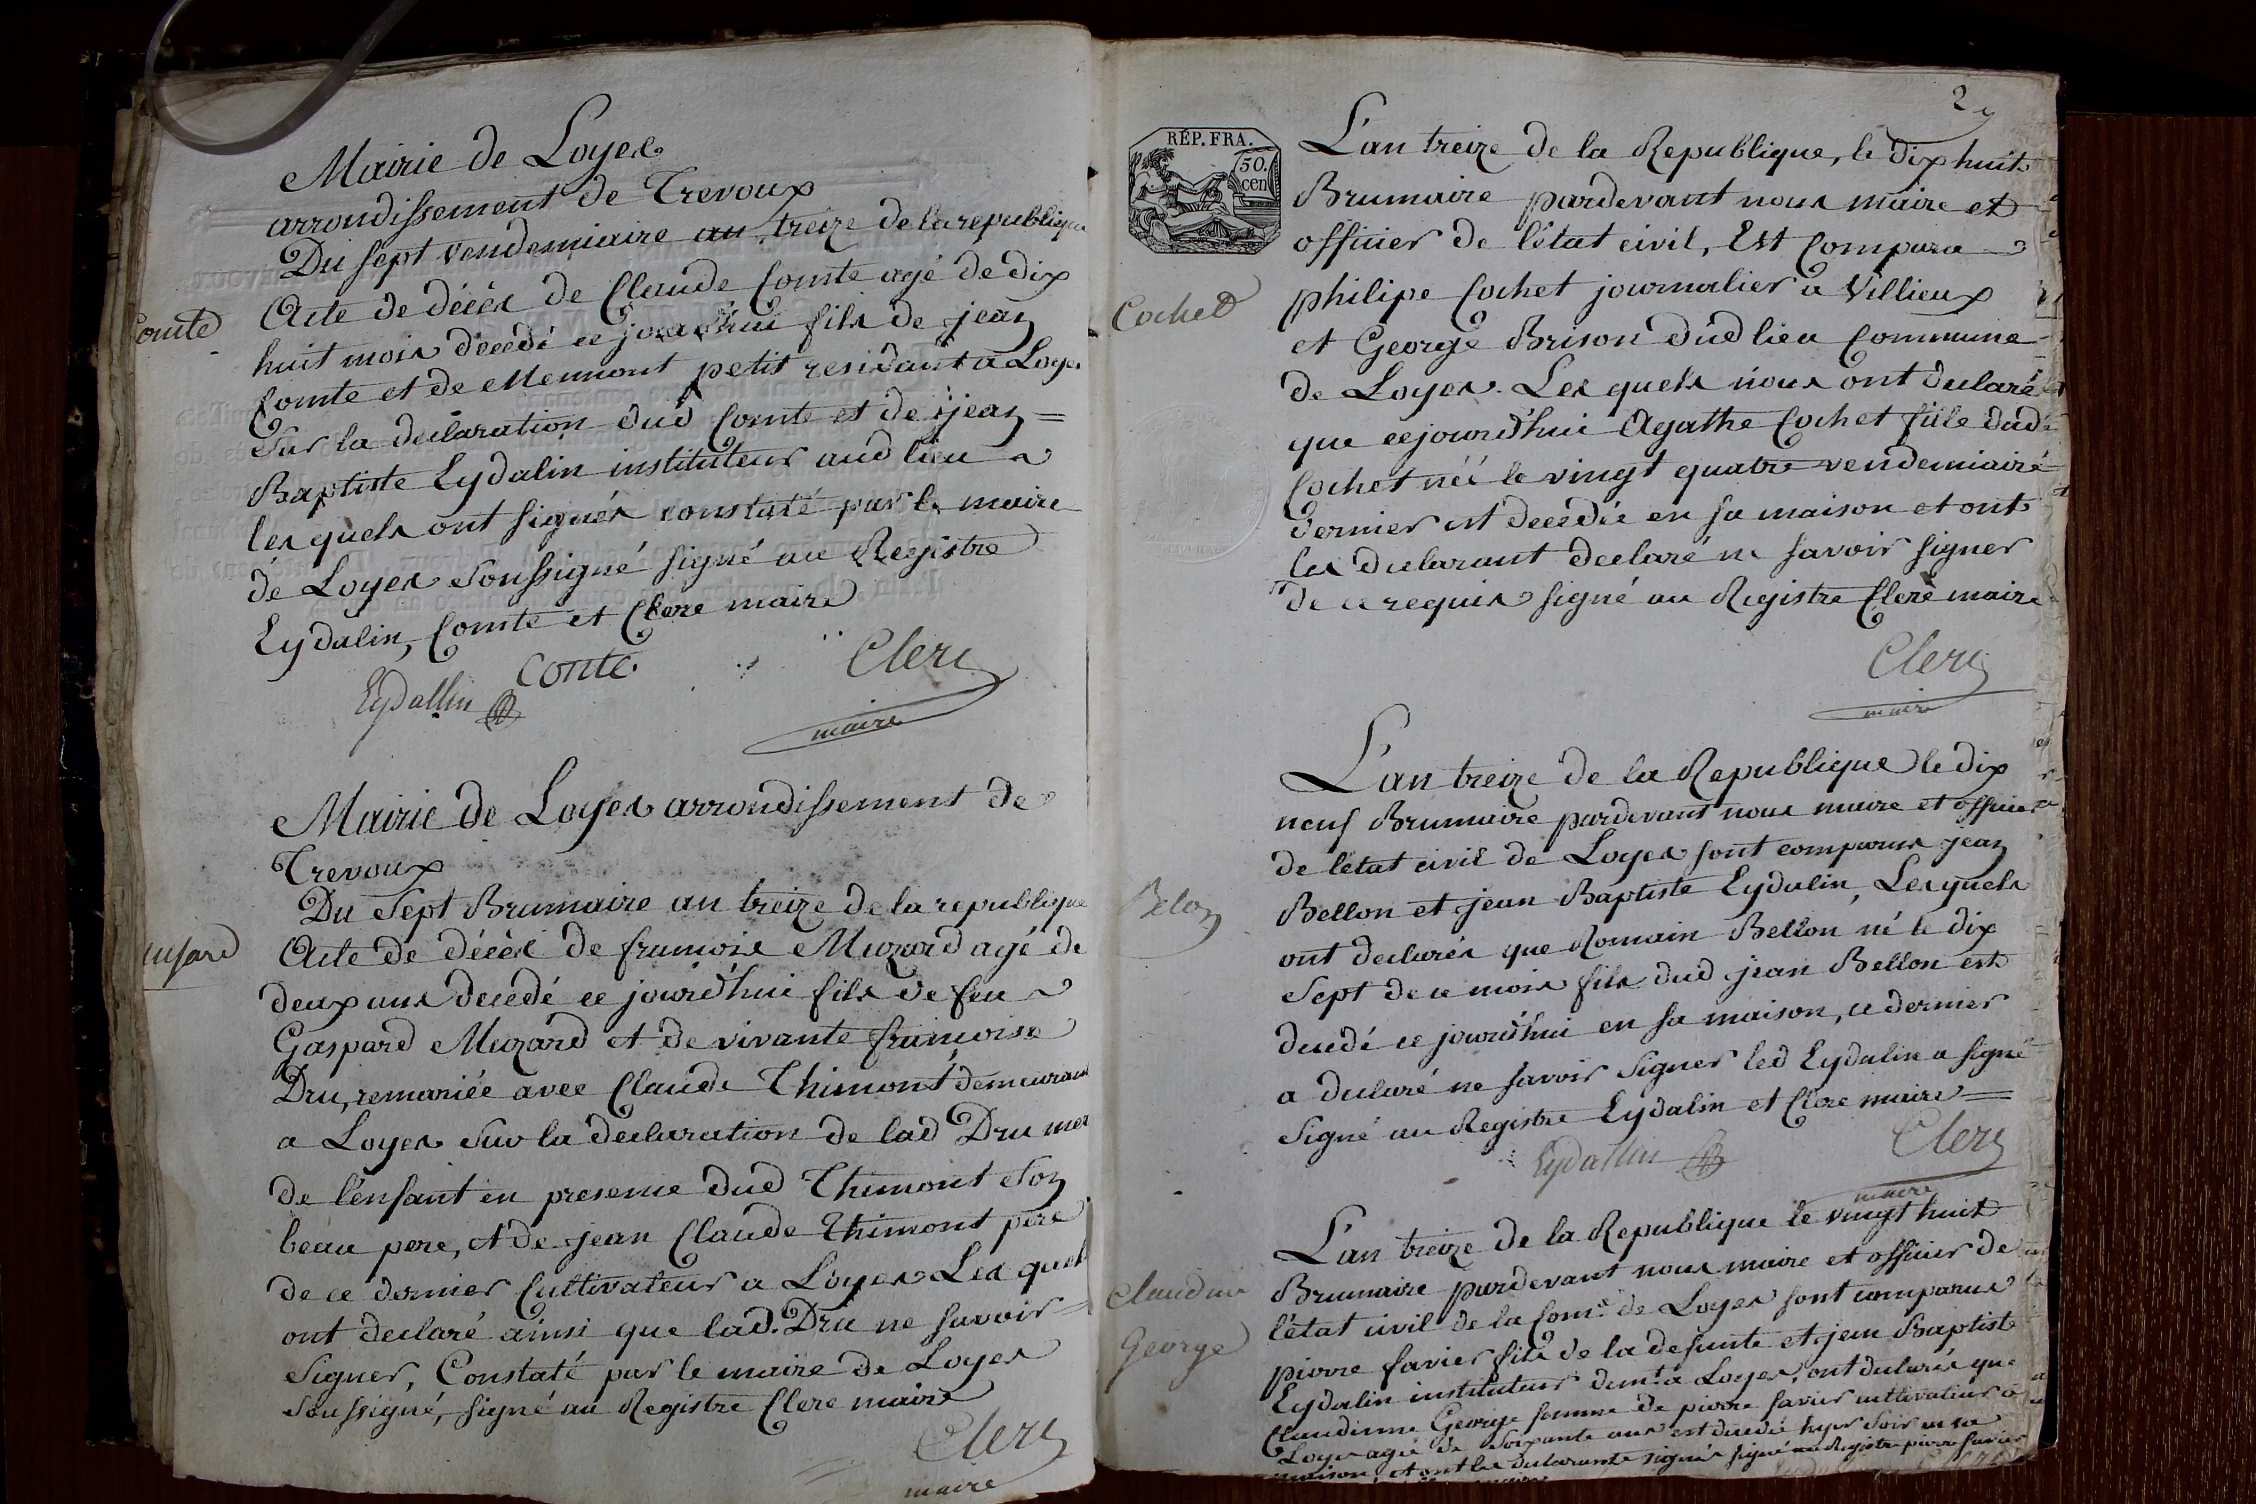 Mairie de Loyes
arrondissement de Trevoux
Du sept vendemiaire an treize de la republique
Comte
Acte de décès de Claude Comte agé de dix
huit mois décédé ce jourd'hui fils de jean
Comte et de Mermont petit residant a Loyes
Sur la declaration dud Comte et de jean =
Baptiste Eydalin instituteur aud lieu
lesquels ont signés constaté par le maire
de Loyes Soussigné signé au Registre
Eydalin, Comte et Clerc maire
Conte Clerc
Eydallin
maire
Mairie de Loyes arrondissement de
Trevoux
Du Sept Brumaire an treize de la republique
Acte de décès de francois Muzard agé de
deux ans decedé ce jourd'hui fils de feu
Gaspard Muzard et de vivante francoise
Dru, remariée avec Claude Thimont demeurant
a Loyes Sur la declaration de lad Dru mer
de l'enfant en presence dud Thimont Son
beau pere, et de jean Claude Thimont pere
de ce dernier Cultivateur a Loyes Les quels
ont declaré ainsi que lad. Dru ne savoir
Signer, Constaté par le maire de Loyes
Soussigné, signé au Registre Clerc maire
Clerc
maire
2
RÉP. FRA.
50.
cen
L'an treize de la Republique, le dix huit
Brumaire pardevant nous maire et
officier de l'état civil, Est Compara
Cochet
philipe Cochet journalier a Villieux
et George Brison dud lieu Commune
de Loyes. Les quels nous ont declaré
que cejourd'hui Agathe Cochet fille dud
Cochet née le vingt quatre vendemiaire
dernier est decedée en sa maison et ont
les declarant declaré ne savoir signer
de ce requis signé au Registre Clerc maire
Clerc
maire
L'an treize de la Republique le dix
neuf Brumaire pardevant nous maire et officier
de l'état civil de Loyes sont comparus jean
Belon
Bellon et jean Baptiste Eydalin, Lesquels
ont declarés que Romain Bellon né le dix
Sept de ce mois fils dud jean Bellon est
decedé ce jourd'hui en sa maison, ce dernier
a declaré ne savoir Signer led Eydalin a signé
Signé au Registre Eydalin et Clerc maire =
Eydallin Clerc
maire
L'an treize de la Republique le vingt huit
Brumaire pardevant nous maire et officier de
Claudine
George
l'état civil de la Come de Loyes sont comparus
pierre favier fils de la defunte et jean Baptiste
Eydalin instituteur demt a Loyes, ont declarés que
Claudinne George femme de pierre favier cultivateur a
Loyes agée de Soixante ans est decedée hyer Soir en sa
maison, et ont les declarants signés signé au Registre pierre favier